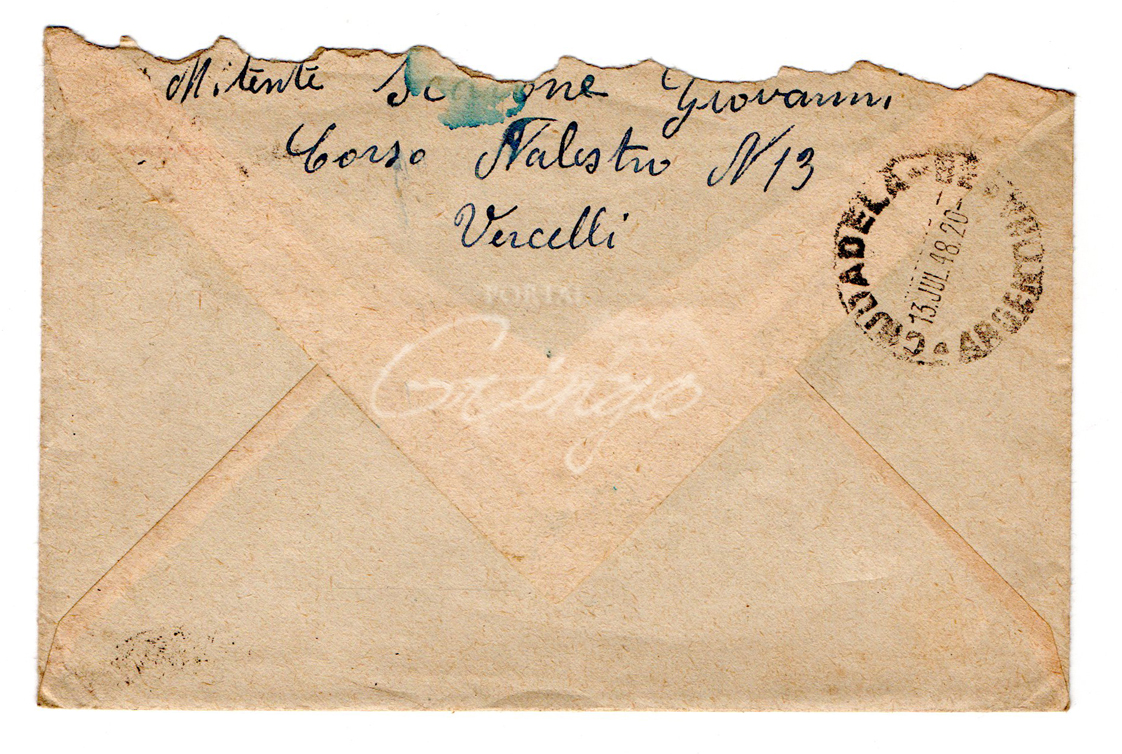 Mitente Scarone Giovanni
Corso Palestro N 13
Vercelli
CIUDADELA - BS.
13.JUL.48.20-
ARGENTINA
Gringo